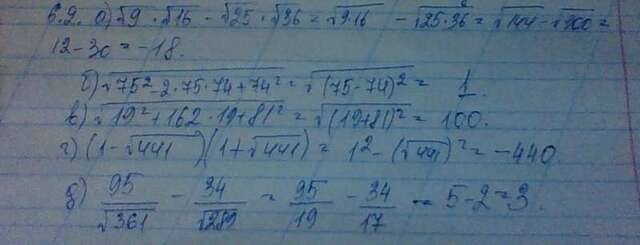 6.2. а) √9 · √16 - √25 · √36 = √9·16 - √25·36 = √144 - √900 =
12 - 30 = -18.
б) √75² - 2·75·74 + 74² = √(75-74)² = 1.
в) √19² + 162·19 + 81² = √(19+81)² = 100.
г) (1 - √441)(1 + √441) = 1² - (√441)² = -440.
д) 95/√361 - 34/√289 = 95/19 - 34/17 = 5 - 2 = 3.